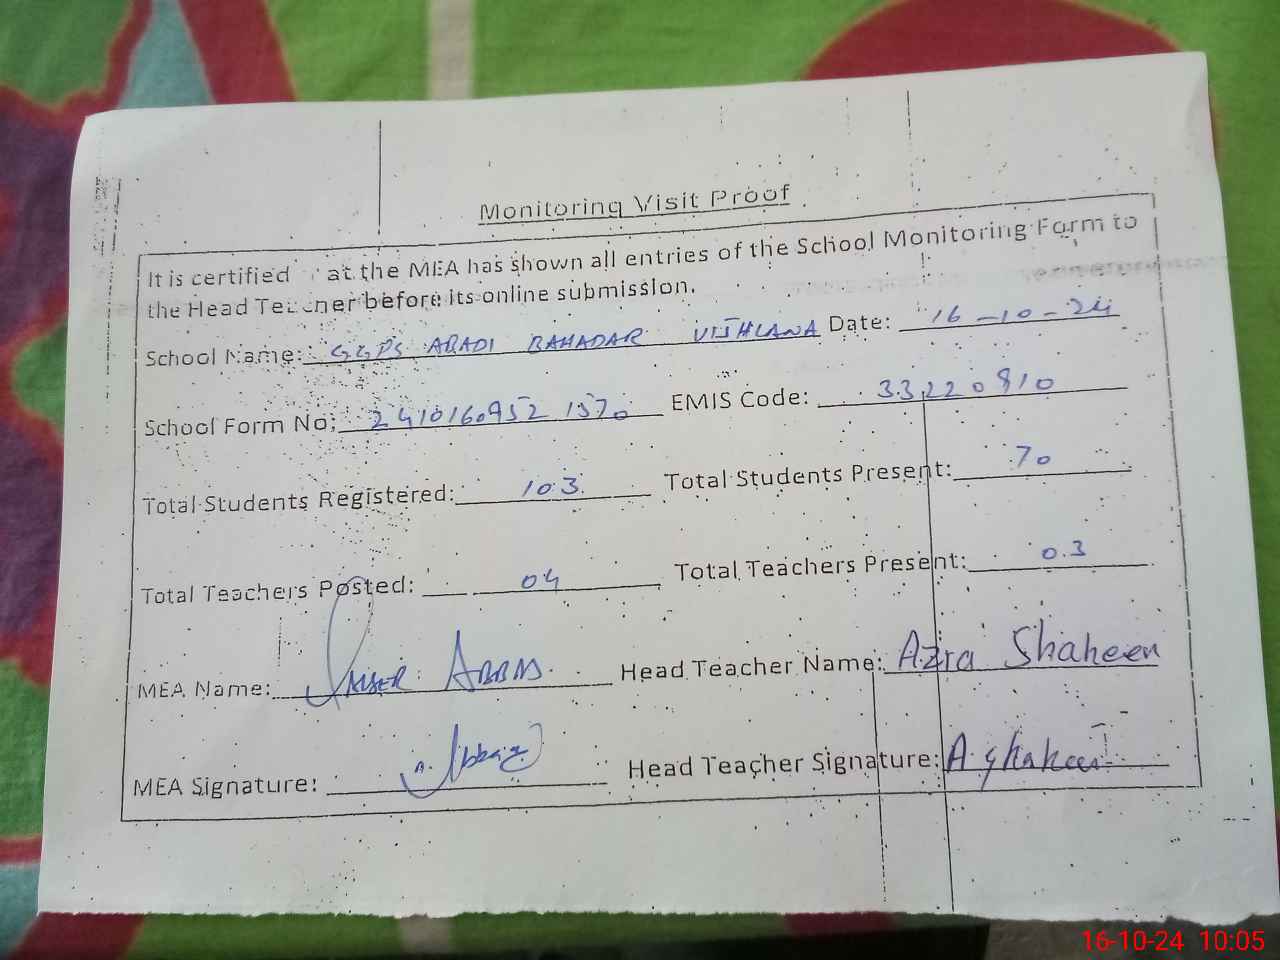 Monitoring Visit Proof
It is certified at the MEA has shown all entries of the School Monitoring Form to
the Head Teacher before its online submission.
School Name: GGPS ABADI BAHADAR VIJHLANA Date: 16-10-24
School Form No: 24101609521570 EMIS Code: 33220810
Total Students Registered: 103 Total Students Present: 70
Total Teachers Posted: 04 Total Teachers Present: 03
MEA Name: ABBAS Head Teacher Name: Azra Shaheen
MEA Signature: Head Teacher Signature: A. Shaheen
16-10-24 10:05